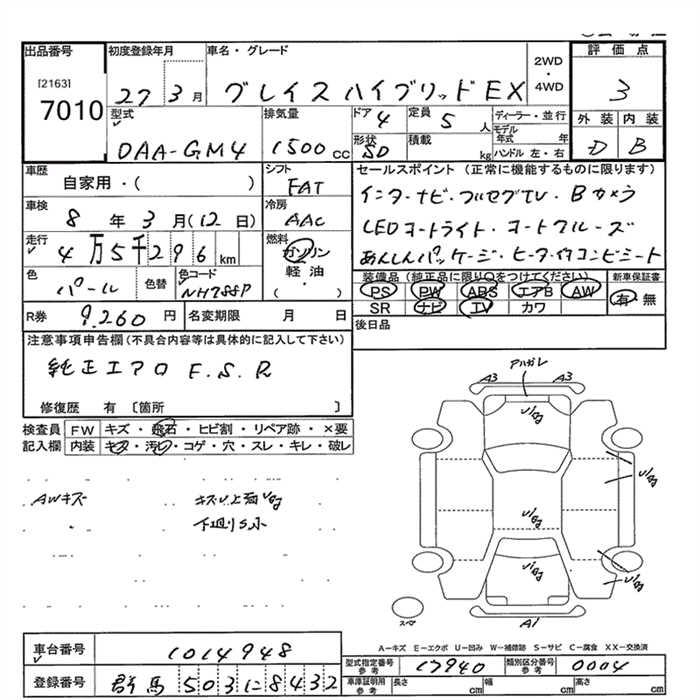 出品番号 初度登録年月 車名・グレード 2WD・4WD 評価点
[2163]
7010 27 3月 グレイスハイブリッドEX 3
型式 排気量 ドア 4 定員 5 人 ディーラー・並行 外装 内装
DAA-GM4 1500 CC 形状 SD 積載 kg モデル年式 年 ハンドル 左・右 D B
車歴 自家用・( ) シフト FAT セールスポイント (正常に機能するものに限ります)
車検 8 年 3 月 (12 日) 冷房 AAC インターナビ・フルセグTV・Bカメラ
LEDオートライト・オートクルーズ
走行 4万5千296 km 燃料 ガソリン 軽油・( ) あんしんパッケージ・ヒーター付コンビシート
色 パール 色替 色コード NH788P 装備品(純正品に限り○をつけてください) 新車保証書
PS PW ABS エアB AW 有・無
SR ナビ TV カワ
R券 9,260 円 名変期限 月 日 後日品
注意事項申告欄(不具合内容等は具体的に記入して下さい)
純正エアロ F.S.R
修復歴 有 〔箇所 〕
検査員 FW キズ・飛石・ヒビ割・リペア跡・×要
記入欄 内装 キズ・汚レ・コゲ・穴・スレ・キレ・破レ
アハガレ
A3 A3
AWキズ
下廻りS小
スペア A1
A-キズ E-エクボ U-凹み W-補修跡 S-サビ C-腐食 XX-交換済
車台番号 1014948
型式指定番号 参考 17940 類別区分番号 参考 0004
登録番号 群馬 503に8432
車庫証明用 参考 長さ cm 幅 cm 高さ cm